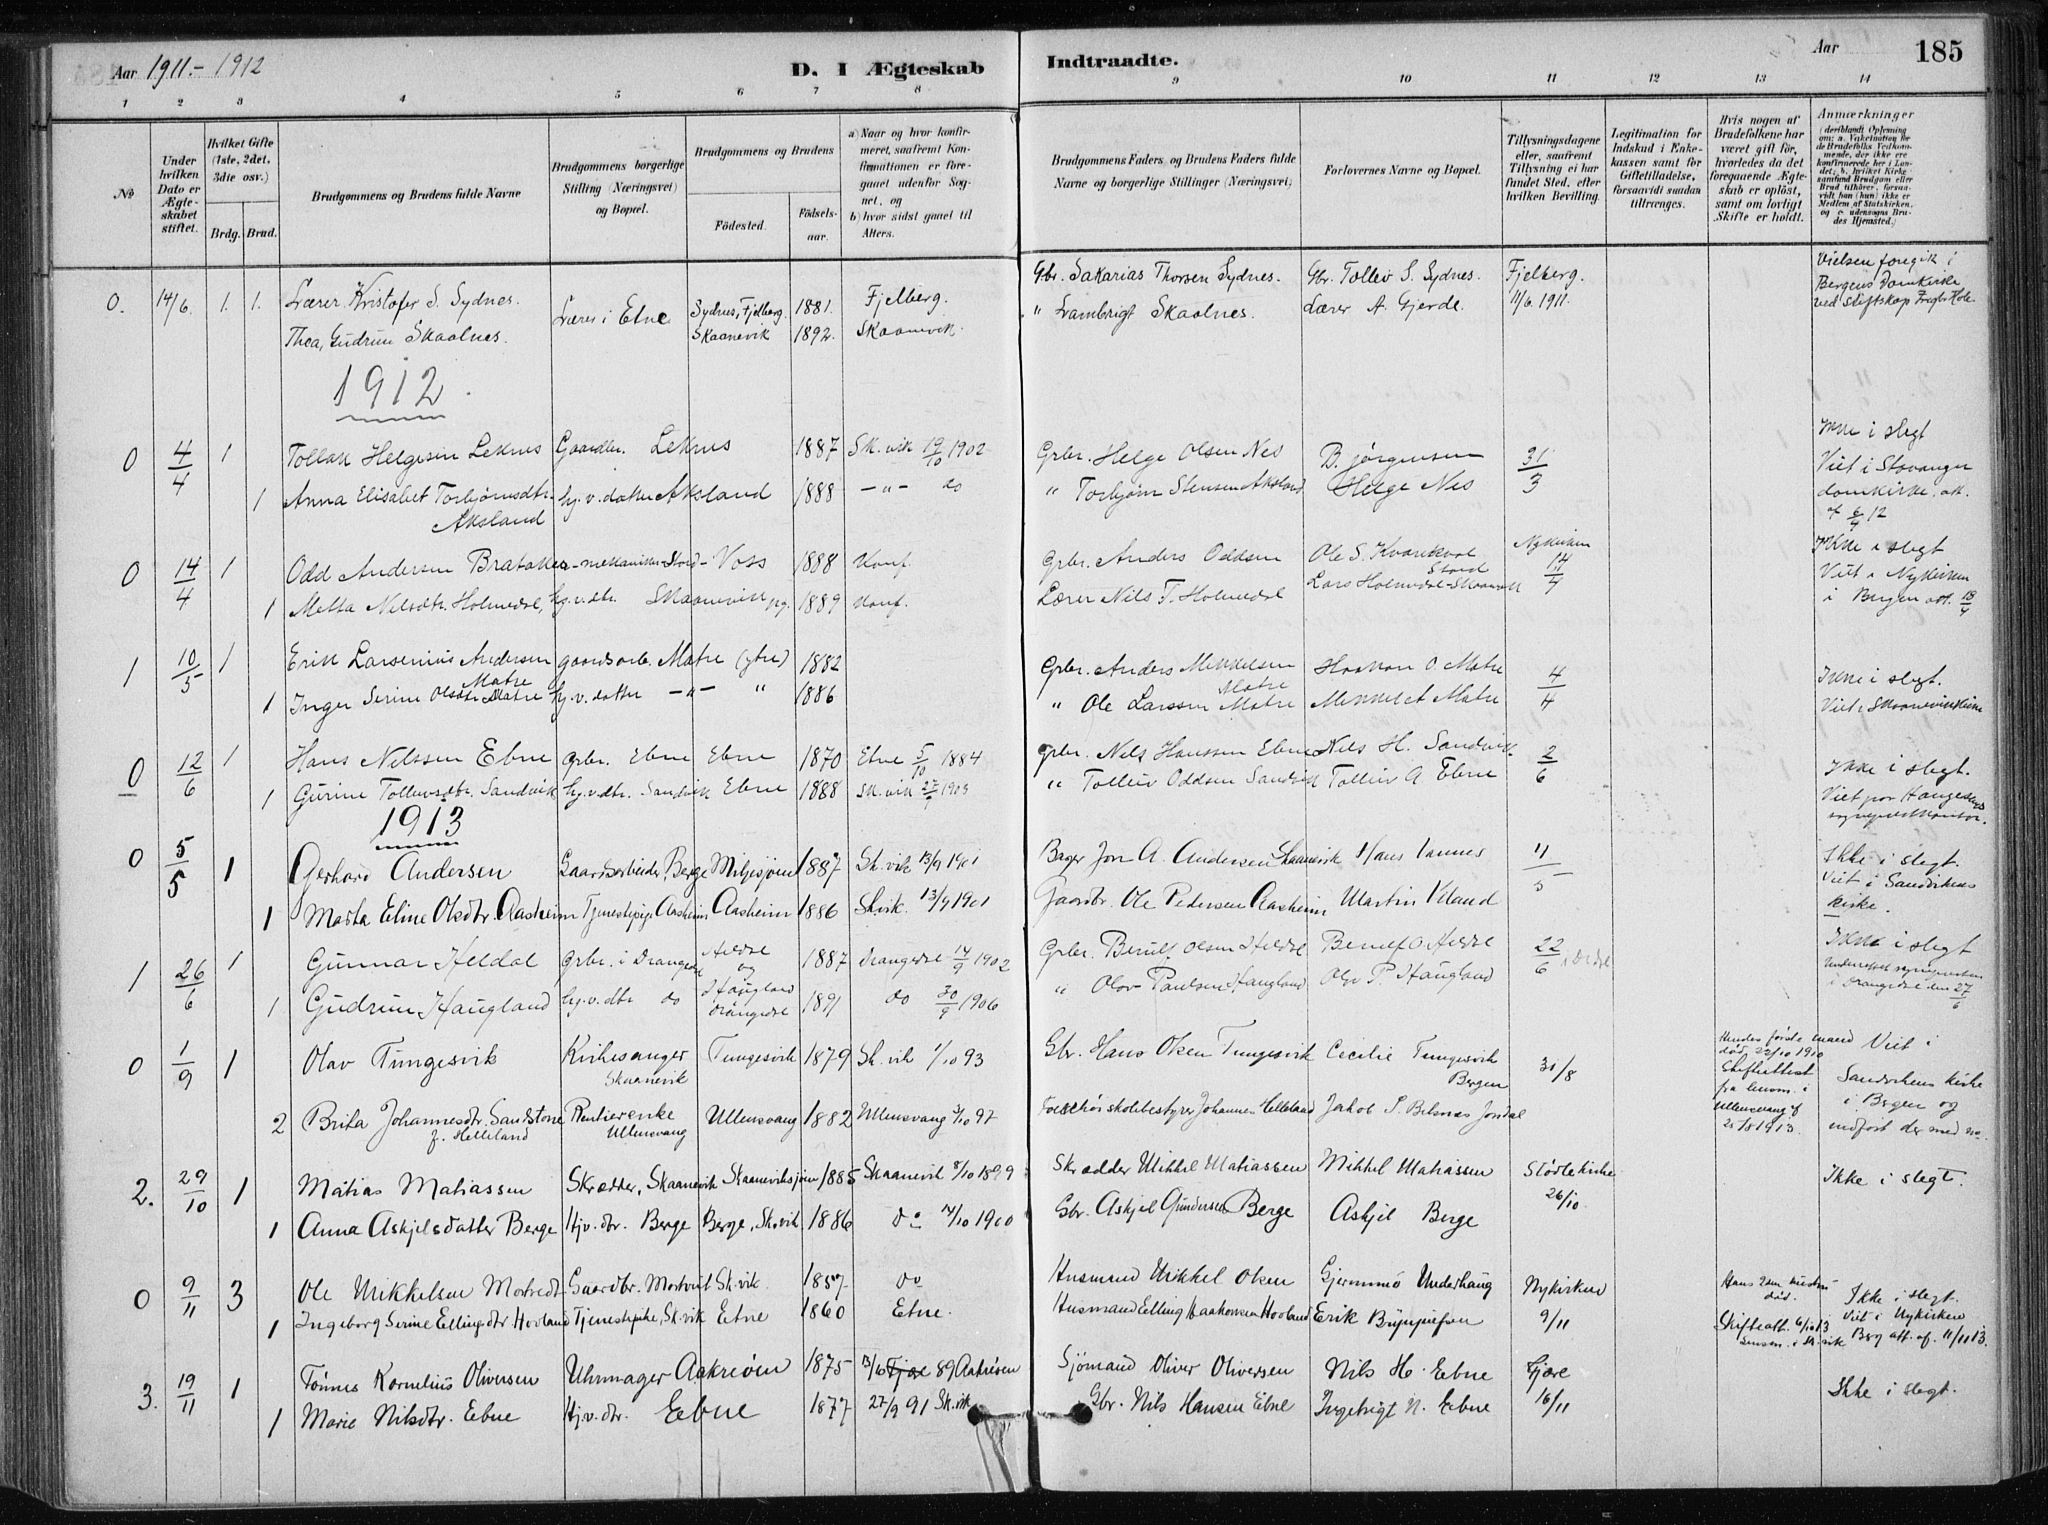 Aar 1911.- 1912
D. I Ægteskab Indtraadte.
Aar 185
1 2 3 4 5 6 7 8 9 10 11 12 13 14
No
Under hvilken Dato er Ægteskabet stiftet.
Hvilket Gifte (1ste, 2det, 3die osv.)
Brdg. Brud.
Brudgommens og Brudens fulde Navne
Brudgommens borgerlige Stilling (Næringsvei) og Bopæl.
Brudgommens og Brudens
Fødested.
Fødselsaar.
a) Naar og hvor konfirmeret, saafremt Konfirmationen er foregaaet udenfor Sognet, og
b) hvor sidst gaaet til Alters.
Brudgommens Faders og Brudens Faders fulde Navne og borgerlige Stillinger (Næringsvei)
Forlovernes Navne og Bopæl.
Tillysningsdagene eller, saafremt Tillysning ei har fundet Sted, efter hvilken Bevilling.
Legitimation for Indskud i Enkekassen samt for Giftetilladelse, forsaavidt saadan tiltrænges.
Hvis nogen af Brudefolkene har været gift før, hvorledes da det foregaaende Ægteskab er opløst, samt om lovligt Skifte er holdt.
Anmærkninger
(deriblandt Oplysning om: a. Vakcination for de Brudefolks Vedkommende, der ikke ere konfirmerede her i Landet; b. hvilket Kirkesamfund Brudgom eller Brud tilhører, forsaavidt han (hun) ikke er Medlem af Statskirken, og c. udensogns Brudes Hjemsted.)
0. 14/6. 1. 1. Lærer Kristofer S. Sydnes. Lærer i Etne Sydnes, Fjelberg. 1881. Fjelberg. Gbr. Sakarias Thorsen Sydnes. Gbr. Tollev S. Sydnes. Fjelberg. 11/6. 1911. Vielsen foregik i Bergens Domkirke ved
Thea, Gudrun Skaalnes. Skaanevik 1892. Skaanevik. " Lambrigt Skaalnes. Lærer A. Gjerde.
1912
0 4/4 1 Tollak Helgesen Leknes Gaardbr. Leknes 1887 Sk.vik 19/10 1902 Grbr. Helge Olsen Nes B. Jørgensen 31/3 Ikke i slegt
1 Anna Elisabet Torbjørnsdtr. Aksland hj.v.datter Aksland 1888 -"- do " Torbjørn Stensen Aksland Helge Nes Viet i Stavanger domkirke. att. af 6/4 12
0 14/4 1 Odd Andersen Brataker mekaniker Stord Voss 1888 Konf. Grbr. Anders Oddsen Ole S. Kvarekval Stord Nykirken 14/4 Ikke i slegt
1 Metta Nilsdtr. Holmedal, hj.v.dtr. Skaanevik pg. 1889 Konf. Lærer Nils T. Holmedal Lars Holmedal Skaanevik Viet i Nykirken i Bergen att. 18/4
1 10/5 1 Erik Larsenius Andersen Matre gaardsarb. Matre (ytre) 1882 Grbr. Anders Mikkelsen Matre Haakon O. Matre 4/4 Ikke i slegt.
1 Inger Serine Olsdtr. Matre hj.v.datter -"- " 1886 " Ole Larssen Matre Mikkel Matre Viet i Skaanevik Kirke
0 12/6 1 Hans Nilssen Ebne grbr. Ebne Ebne 1870 Etne 5/10 1884 Grbr. Nils Hanssen Ebne Nils H. Sandvik 2/6 Ikke i slegt.
1 Gurine Tollevsdtr. Sandvik hj.v.dtr. Sandvik Ebne 1888 Sk.vik 27/9 1903 " Tolleiv Oddsen Sandvik Tolleiv A Ebne Viet paa Haugesunds sogneprestkontor.
1913
0 5/5 1 Gerhard Andersen Gaardsarbeider, Berge Miljesjøen 1887 Sk.vik 13/9 1901 Bager Jon A. Andersen Skaanevik Hans Vannes 11/5 Ikke i slegt.
1 Marta Eline Olsdtr. Aasheim Tjenestepige Aasheim Aasheim 1886 Skvik. 13/9 1901 Gaardbr. Ole Pedersen Aasheim Martin Viland Viet i Sandvikens kirke.
1 26/6 1 Gunnar Heldal grbr. i Drangedal Heldal og 1887 Drangedal 14/9 1902 Grbr. Berulf Olsen Heldal Berulf O Heldal 22/6 i Drdal Ikke i slegt
1 Gudrun Haugland hj.v.dtr do Haugland Drangedal 1891 do 30/9 1906 " Olav Paulsen Haugland Olav P. Haugland Underrettet sognepresten i Drangedal den 27/6
0 1/9 1 Olav Tungesvik Kirkesanger Skaanevik Tungesvik 1879 Sk.vik 1/10 93 Gbr. Hans Olsen Tungesvik Cecilie Tungesvik Bergen 31/8 Hendes første mand død 22/10 1910 Viet i
2 Brita Johannesdtr. Sandstone f. Helleland Rentierenke Ullensvang Ullensvang 1882 Ullensvang 3/10 97 Johannes Helleland Jakob S. Skifteattest fra lensm. i Ullensvang af 21/8 1913. Sandvikens kirke i Bergen og indført der med no.
2. 29/10 1 Matias Matiassen Skrædder, Skaanevik Skaaneviksjøen 1885 Skaanevik 8/10 1899 Skrædder Mikkel Matiassen Mikkel Matiassen Stødle kirke 26/10 Ikke i slegt.
1 Anna Askjelsdatter Berge Hj.v.dtr. Berge Berge, Sk.vik 1886 do 14/10 1900 Gbr. Askjel Gundersen Berge Askjel Berge
0 9/11 3 Ole Mikkelsen Mortvedt Gaardbr. Mortveit Sk.vik. 1857 do Husmand Mikkel Olsen Gjermund Underhaug Nykirken Hans 2den hustru død. Ikke i slegt.
1 Ingeborg Serine Ellingsdtr Hovland Tjenestepike, Sk.vik Etne 1860 Etne. Husmand Elling Haakonsen Hovland Erik 9/11 Skifteatt. 6/10 13 Viet i Nykirken Berg. att. af. 11/11 13.
3. 19/11 1 Tønnes Kornelius Oliversen Uhrmager Aakreøen 1875 13/10 89 Aakreøen Sjømand Oliver Oliversen Nils H. Ebne Gjære 16/11 Ikke i slegt.
1 Marie Nilsdtr. Ebne Hj.v.dtr. Ebne 1877 27/9 91 Sk.vik Gbr. Nils Hansen Ebne Ingebrigt N. Ebne